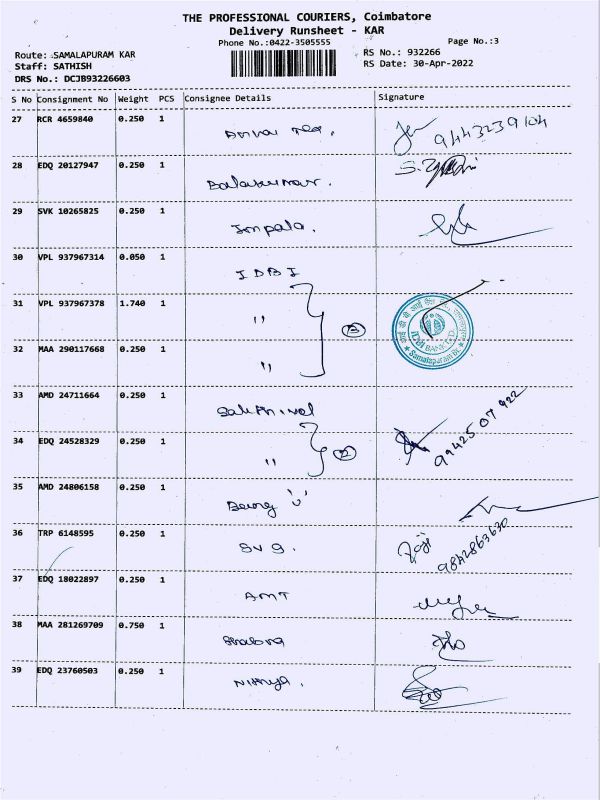 THE PROFESSIONAL COURIERS, Coimbatore
Delivery Runsheet - KAR
Phone No.:0422-3505555 Page No.:3
Route: SAMALAPURAM KAR RS No.: 932266
Staff: SATHISH RS Date: 30-Apr-2022
DRS No.: DCJB93226603
S No Consignment No Weight PCS Consignee Details Signature
27 RCR 4659840 0.250 1 9443239104
28 EDQ 20127947 0.250 1 Balakumar.
29 SVK 10265825 0.250 1 Impala.
30 VPL 937967314 0.050 1 IDBI
31 VPL 937967378 1.740 1 " 3 IDBI BANK LTD. Samalapuram Br.
32 MAA 290117668 0.250 1 "
33 AMD 24711664 0.250 1 Sakthivel
34 EDQ 24528329 0.250 1 " 2 99425 07 922
35 AMD 24806158 0.250 1 Being 'U'
36 TRP 6148595 0.250 1 SVG. 9842863630
37 EDQ 18022897 0.250 1 AMT
38 MAA 281269709 0.750 1
39 EDQ 23760503 0.250 1 Nithya.